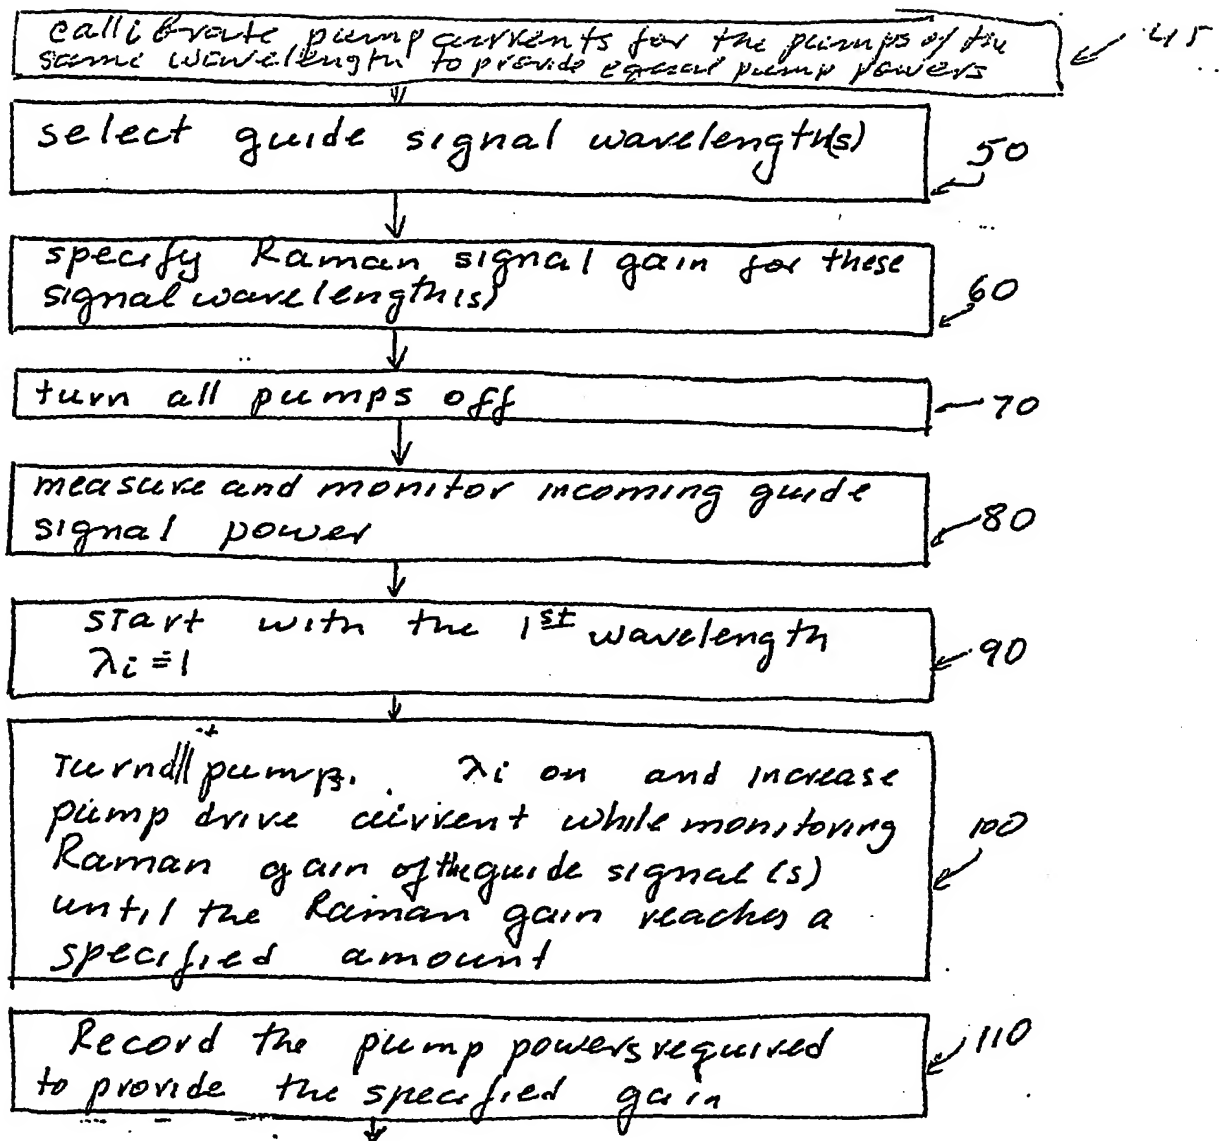 callibrate pump currents for the pumps of the
same wavelength to provide equal pump powers
45
select guide signal wavelength(s)
50
specify Raman signal gain for these
signal wavelength(s)
60
turn all pumps off
70
measure and monitor incoming guide
signal power
80
start with the 1st wavelength
λi=1
90
Turn all pumps. λi on and increase
pump drive current while monitoring
Raman gain of the guide signal(s)
until the Raman gain reaches a
specified amount
100
Record the pump powers required
to provide the specified gain
110